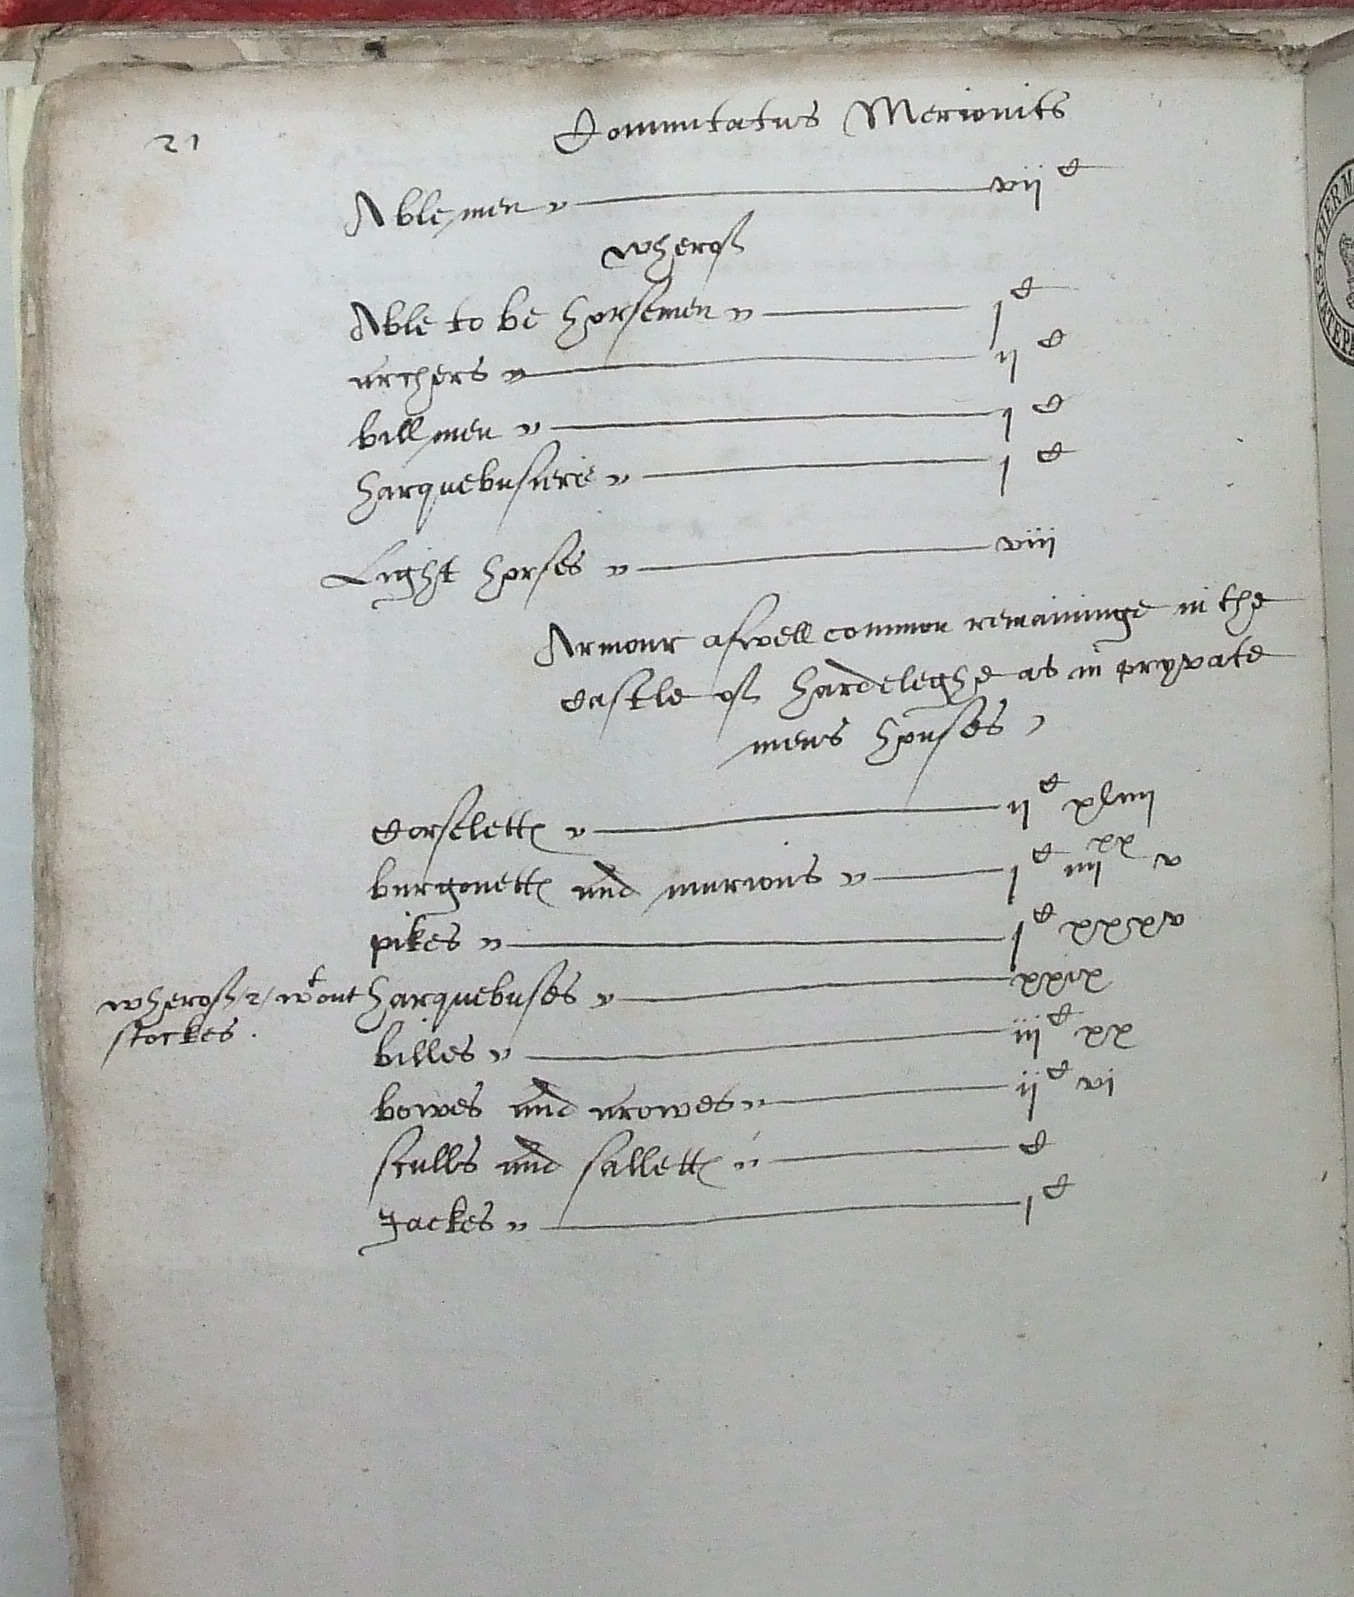 21
Commitatus Merionits
Able men — vii C
wherof
Able to be horsemen — j C
archers — ij C
bill men — j C
harquebusiere — j C
Light horses — viii
Armour aswell common remaininge in the
Castle of Hardeleghe as in pryvate
mens houses
Corselettes — ij C xliiij
burgonettes and murions — j C iiij xx v
pikes — j C xxxxv
wherof 2 / wt out harquebuses — xxix
stockes .
billes — iij C xx
bowes and arowes — ij C vi
sculls and sallettes — C
Jackes — j C